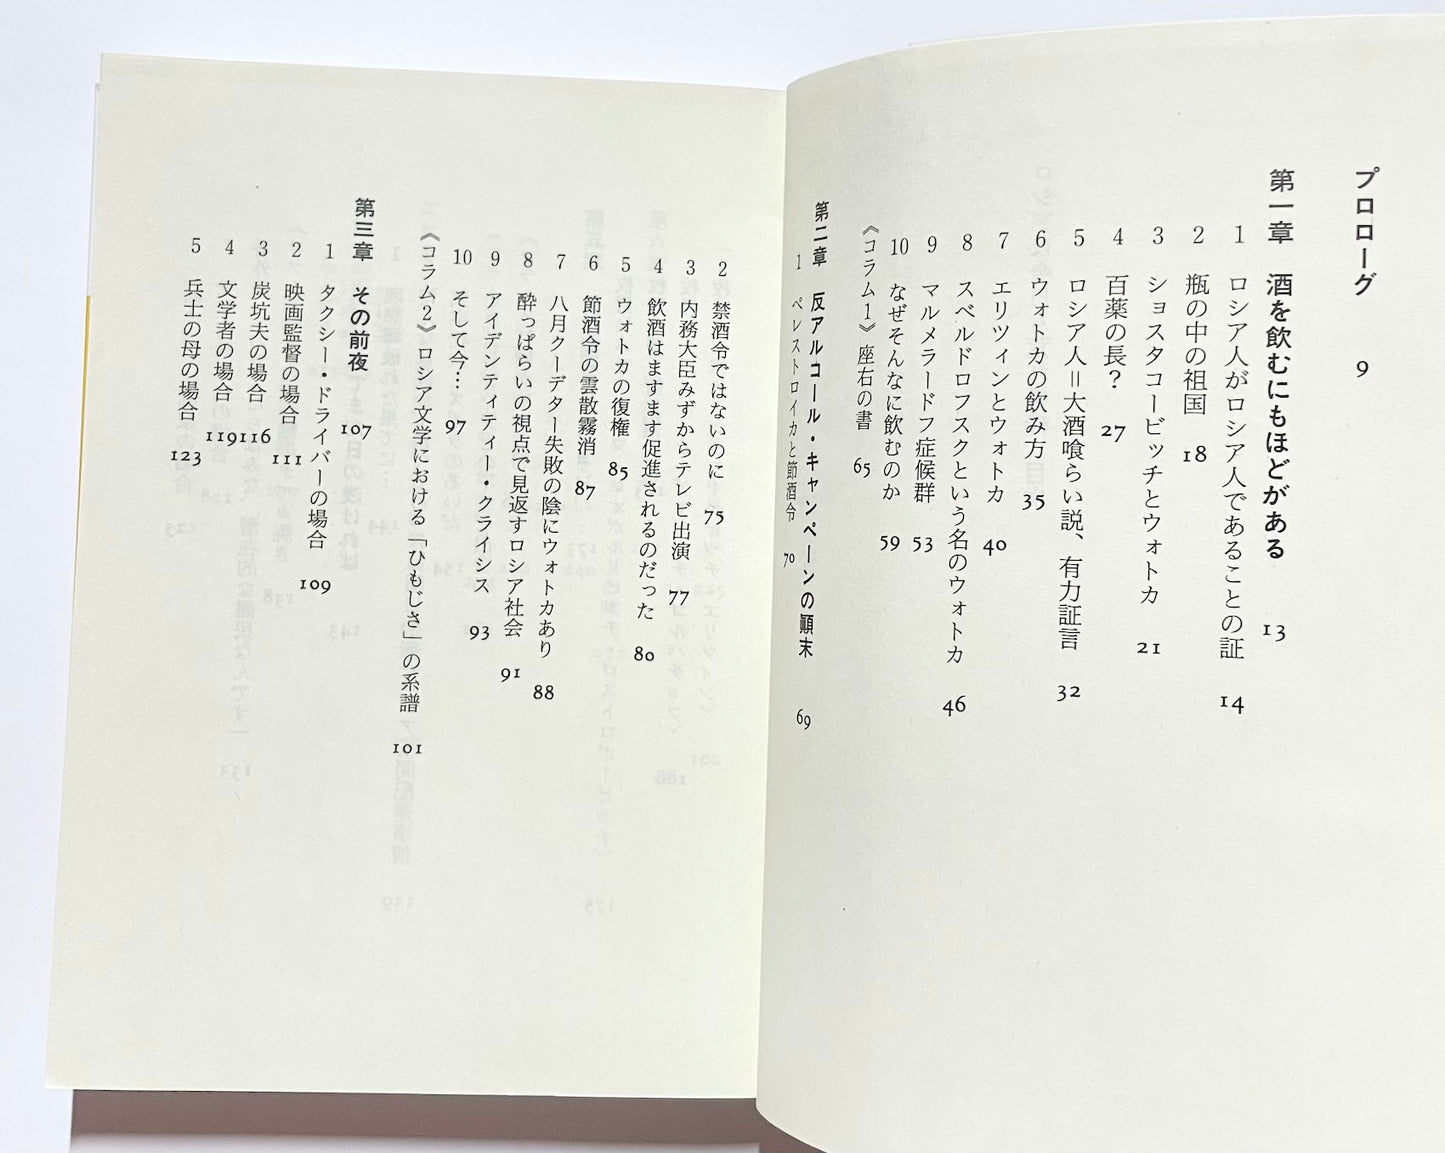 プロローグ 9
第一章 酒を飲むにもほどがある 13
1 ロシア人がロシア人であることの証 14
2 瓶の中の祖国 18
3 ショスタコービッチとウォトカ 21
4 百薬の長? 27
5 ロシア人＝大酒喰らい説、有力証言 32
6 ウォトカの飲み方 35
7 エリツィンとウォトカ 40
8 スベルドロフスクという名のウォトカ 46
9 マルメラードフ症候群 53
10 なぜそんなに飲むのか 59
《コラム1》座右の書 65
第二章 反アルコール・キャンペーンの顚末 69
1 ペレストロイカと節酒令 70
2 禁酒令ではないのに 75
3 内務大臣みずからテレビ出演 77
4 飲酒はますます促進されるのだった 80
5 ウォトカの復権 85
6 節酒令の雲散霧消 87
7 八月クーデター失敗の陰にウォトカあり 88
8 酔っぱらいの視点で見返すロシア社会 91
9 アイデンティティー・クライシス 93
10 そして今… 97
《コラム2》ロシア文学における「ひもじさ」の系譜 101
第三章 その前夜 107
1 タクシー・ドライバーの場合 109
2 映画監督の場合 111
3 炭坑夫の場合 116
4 文学者の場合 119
5 兵士の母の場合 123